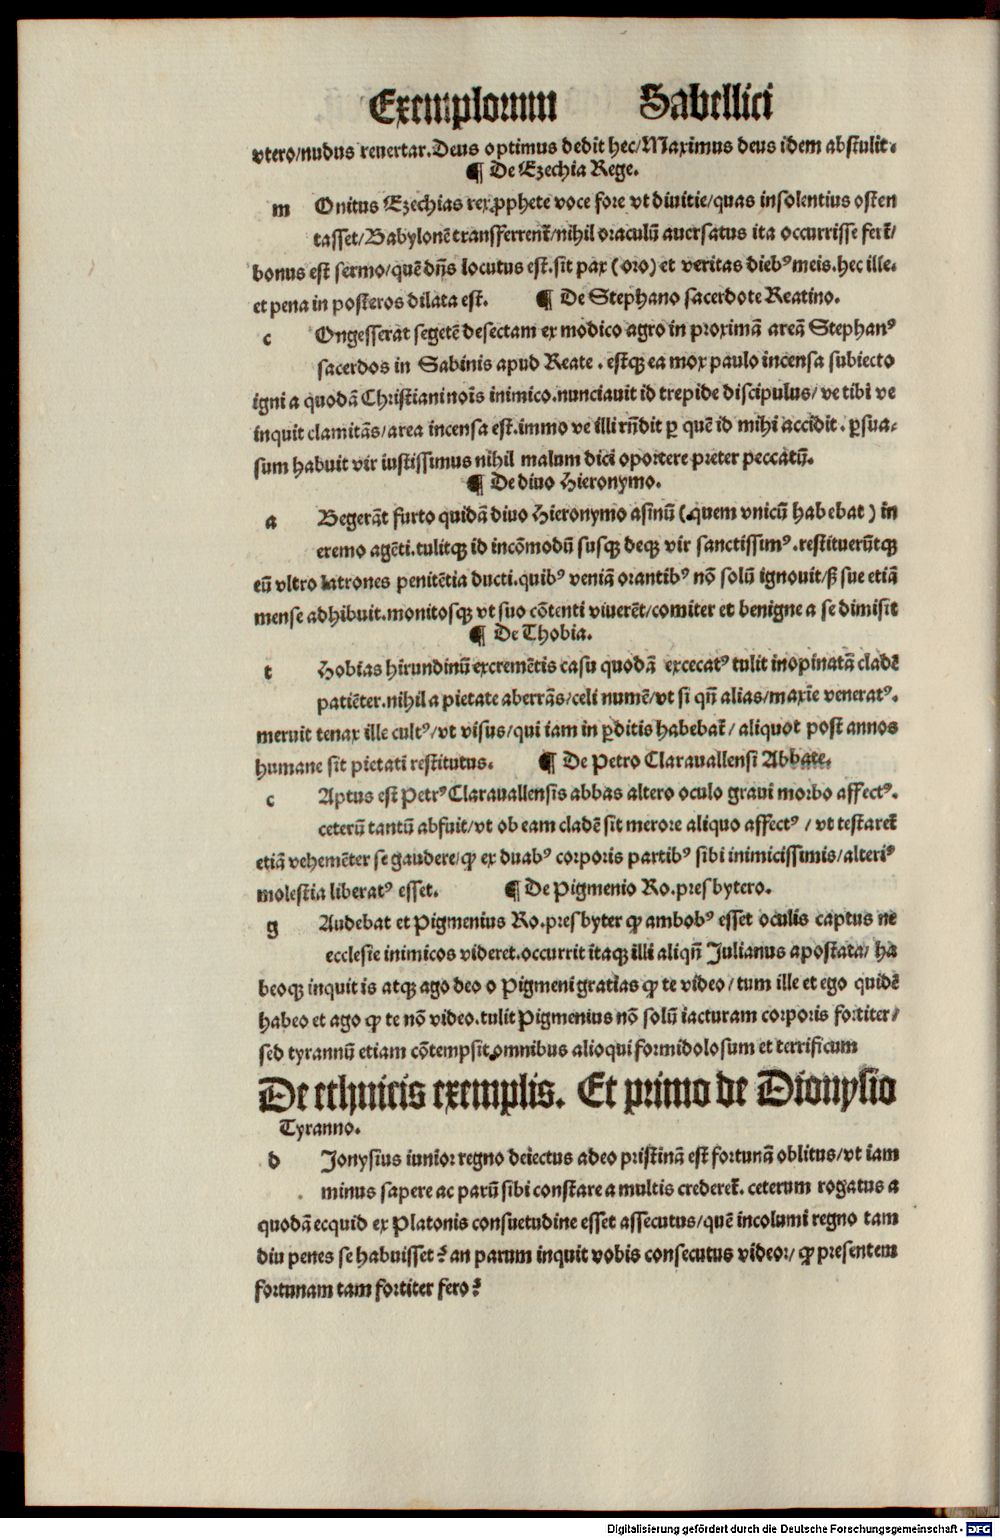 Exemplorum Sabellici
vtero/nudus reuertar.Deus optimus dedit hec/Maximus deus idem abstulit.
¶ De Ezechia Rege.
m Onitus Ezechias rex ꝓphete voce fore vt diuitie/quas insolentius osten
tasset/Babylonē transfferrent᷑/nihil oraculū auersatus ita occurrisse fert᷑/
bonus est sermo/quē dn̄s locutus est.sit pax (oro) et veritas diebꝰ meis.hec ille.
et pena in posteros dilata est. ¶ De Stephano sacerdote Reatino.
c Ongesserāt segetē desectam ex modico agro in proximā areā Stephanꝰ
sacerdos in Sabinis apud Reate . estqꝫ ea mox paulo incensa subiecto
igni a quodā Christiani nois inimico.nunciauit id trepide discipulus/ ve tibi ve
inquit clamitās/area incensa est.immo ve illi rn̄dit ꝑ quē id mihi accidit. ꝑsua/
sum habuit vir iustissimus nihil malum dici oportere preter peccatū.
¶ De diuo Hieronymo.
a Begerāt furto quidā diuo Hieronymo asinū (quem vnicū habebat) in
eremo agēti.tulitqꝫ id incōmodū susqꝫ deqꝫ vir sanctissimꝰ.restituerūtqꝫ
eū vltro latrones penitētia ducti.quibꝰ veniā orantibꝰ nō solū ignouit/ꝭ sue etiā
mense adhibuit.monitosqꝫ vt suo cōtenti viuerēt/comiter et benigne a se dimisit
¶ De Thobia.
t Hobias hirundinū excremētis casu quodā excecatꝰ tulit inopinatā cladē
patiēter.nihil a pietate aberrās/celi numē/vt si qn̄ alias/maxīe veneratꝰ.
meruit tenax ille cultꝰ/vt visus/qui iam in ꝑditis habebat᷑/ aliquot post annos
humane sit pietati restitutus. ¶ De Petro Clarauallensi Abbate.
c Aptus est Petrꝰ Clarauallensis abbas altero oculo graui morbo affectꝰ.
ceterū tantū abfuit/vt ob eam cladē sit merore aliquo affectꝰ / vt testaret᷑
etiā vehemēter se gaudere/ꝙ ex duabꝰ corporis partibꝰ sibi inimicissimis/alteriꝰ
molestia liberatꝰ esset. ¶ De Pigmenio Ro.presbytero.
g Audebat et Pigmenius Ro.presbyter ꝙ ambobꝰ esset oculis captus ne
ecclesie inimicos videret.occurrit itaqꝫ illi aliqn̄ Julianus apostata/ ha
beoqꝫ inquit is atqꝫ ago deo o Pigmeni gratias ꝙ te video/ tum ille et ego quidē
habeo et ago ꝙ te nō video.tulit Pigmenius nō solū iacturam corporis fortiter/
sed tyrannū etiam cōtempsit.omnibus alioqui formidolosum et terrificum
De ethnicis exemplis. Et primo de Dionysio
Tyranno.
d Jonysius iunior regno deiectus adeo pristinā est fortunā oblitus/vt iam
minus sapere ac parū sibi constare a multis crederet᷑. ceterum rogatus a
quodā ecquid ex Platonis consuetudine esset assecutus/quē incolumi regno tam
diu penes se habuisset? an parum inquit vobis consecutus videor/ ꝙ presentem
fortunam tam fortiter fero?
Digitalisierung gefördert durch die Deutsche Forschungsgemeinschaft - DFG